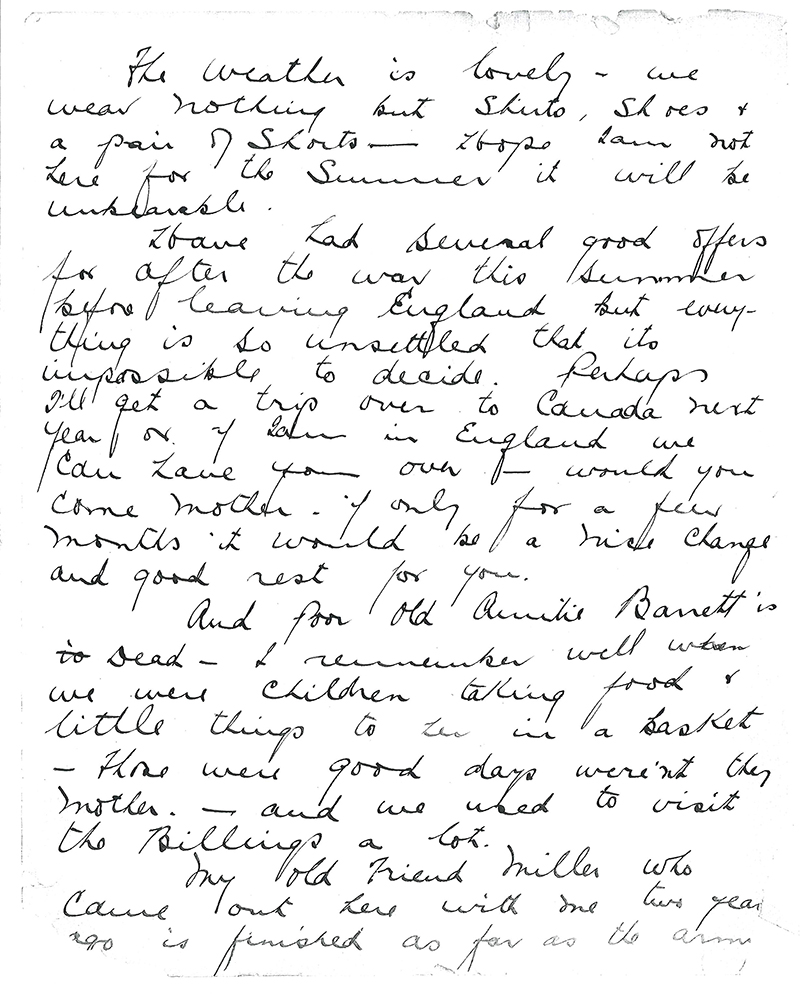 The Weather is lovely - we
wear nothing but Shirts, Shoes &
a pair of Shorts - I hope I am not
here for the Summer it will be
unbearable.
I have had several good offers
for after the war this summer
before leaving England but every-
thing is so unsettled that its
impossible to decide. Perhaps
I'll get a trip over to Canada next
year or if I am in England we
can have you over - would you
come Mother - if only for a few
months it would be a nice change
and good rest for you.
And poor old Auntie Barrett is
to Dead - I remember well when
we were children taking food &
little things to her in a basket
- Those were good days were'nt they
Mother. - and we used to visit
the Billings a lot.
My old Friend Miller who
came out here with me two year
ago is finished as far as the army